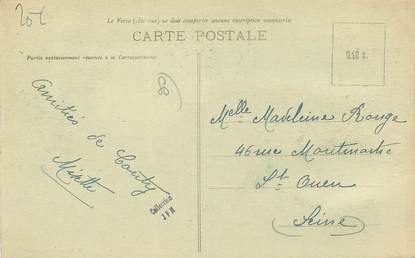 20f
Le Verso (côté vue) ne doit comporter aucune inscription manuscrite
CARTE POSTALE
Partie exclusivement réservée à la Correspondance.
0.10 c.
Amitiés de Conty
Misette
Collection
J P H
Melle Madeleine Rouge
46 rue Montmartre
St Ouen
(Seine)